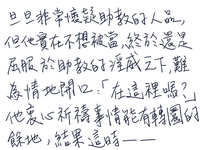 旦旦非常懷疑助教的人品，
但他實在不想被當，終於還是
屈服於助教的淫威之下，難
為情地開口：「在這裡嗎？」
他衷心祈禱事情能有轉圜的
餘地，結果這時——